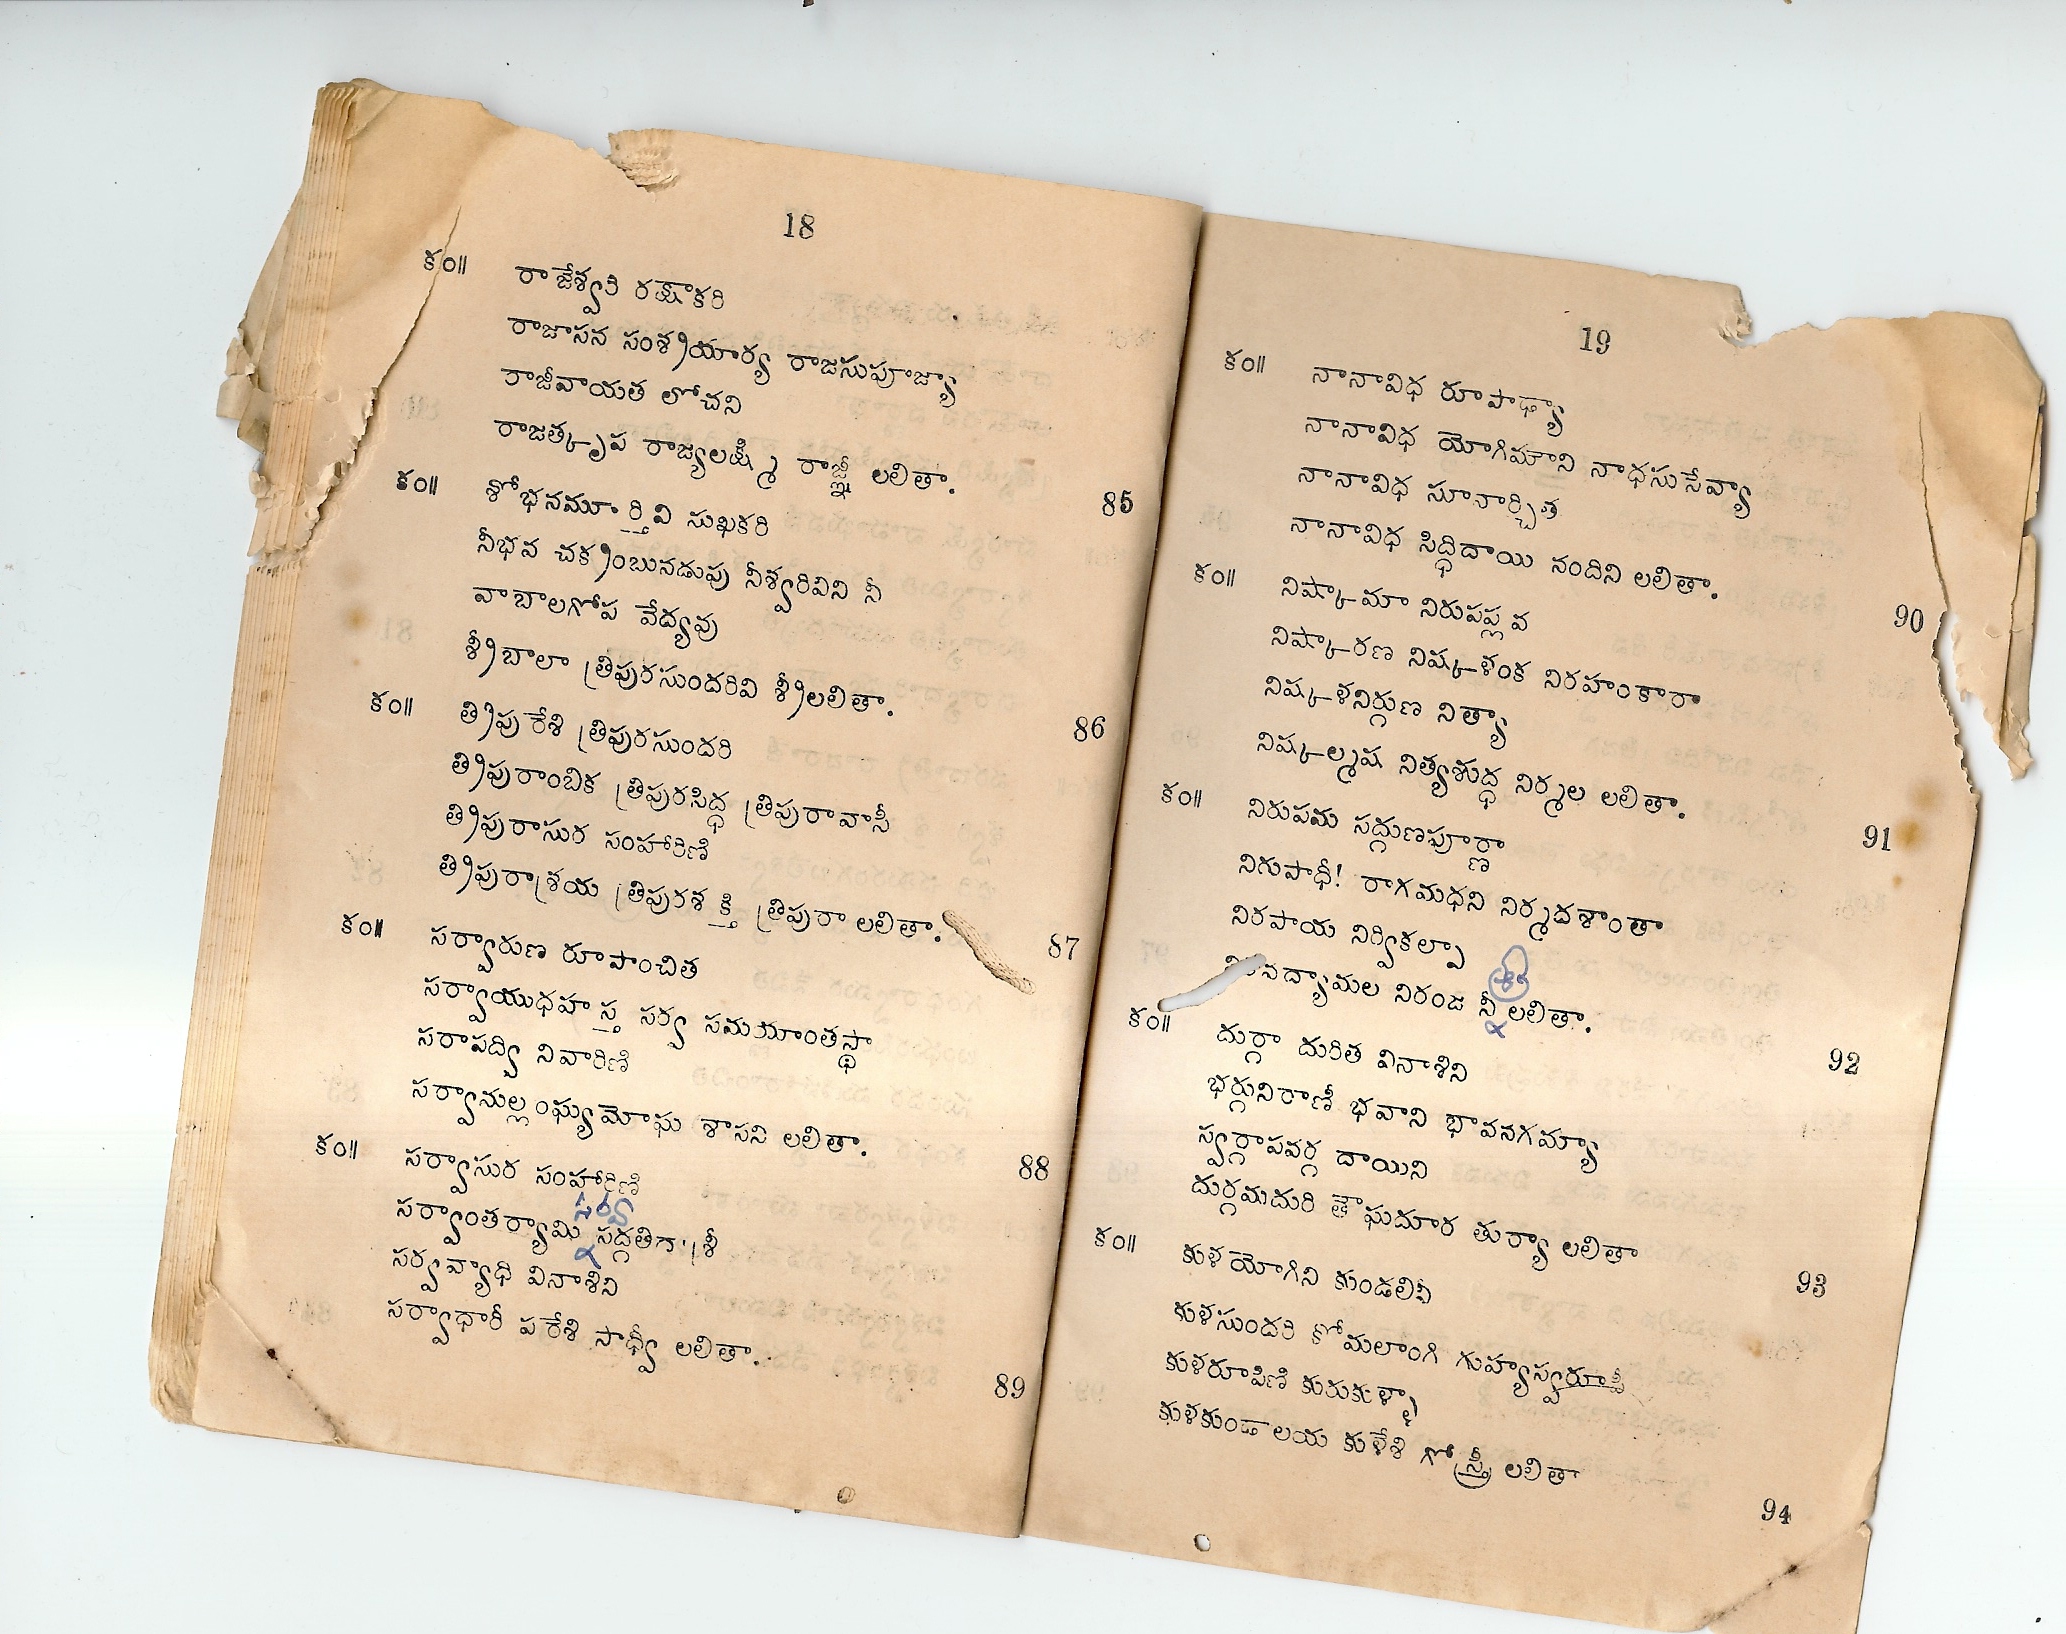 18
కం॥ రాజేశ్వరి రక్షాకరి
రాజాసన సంశ్రియార్య రాజసుపూజ్యా
రాజీవాయత లోచని
రాజత్కృప రాజ్యలక్ష్మి రాజ్ఞీ లలితా. 85
కం॥ శోభనమూర్తివి సుఖకరి
నీభవ చక్రంబునడుపు నీశ్వరివిని నీ
వాబాలగోప వేద్యవు
శ్రీబాలా త్రిపురసుందరివి శ్రీలలితా. 86
కం॥ త్రిపురేశి త్రిపురసుందరి
త్రిపురాంబిక త్రిపురసిద్ధ త్రిపురావాసీ
త్రిపురాసుర సంహారిణి
త్రిపురాశ్రయ త్రిపురశక్తి త్రిపురా లలితా. 87
కం॥ సర్వారుణ రూపాంచిత
సర్వాయుధహస్త సర్వ సమయాంతస్థా
సరాపద్వి నివారిణి
సర్వానుల్లంఘ్యమోఘ శాసని లలితా. 88
కం॥ సర్వాసుర సంహారిణి
సర్వ
సర్వాంతర్యామి సద్గతి
సర్వవ్యాధి వినాశిని
సర్వాధారీ పరేశి సాధ్వీ లలితా. 89
19
కం॥ నానావిధ రూపాఢ్యా
నానావిధ యోగిమౌని నాధసుసేవ్యా
నానావిధ సూనార్చిత
నానావిధ సిద్ధిదాయి నందిని లలితా. 90
కం॥ నిష్కామా నిరుపప్లవ
నిష్కారణ నిష్కళంక నిరహంకారా
నిష్కళనిర్గుణ నిత్యా
నిష్కల్మష నిత్యశుద్ధ నిర్మల లలితా. 91
కం॥ నిరుపమ సద్గుణపూర్ణా
నిగుపాధీ! రాగమధని నిర్మదశాంతా
నిరపాయ నిర్వికల్పా
నిరంజ నీ లలితా. 92
కం॥ దుర్గా దురిత వినాశిని
భర్గునిరాణీ భవాని భావనగమ్యా
స్వర్గాపవర్గ దాయిని
దుర్గమదురి తౌఘదూర తుర్యా లలితా 93
కం॥ కుళయోగిని కుండలినీ
కుళసుందరి కోమలాంగి గుహ్యస్వరూపీ
కుళరూపిణి కురుకుళ్ళా
కుళకుండాలయ కుళేశి గోస్త్రీ లలితా 94